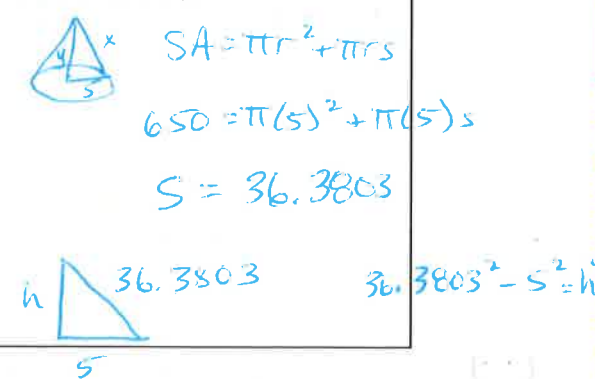 x
SA = πr² + πrs
y
5
650 = π(5)² + π(5)s
S = 36.3803
h
36.3803
36.3803² - 5² = h
5